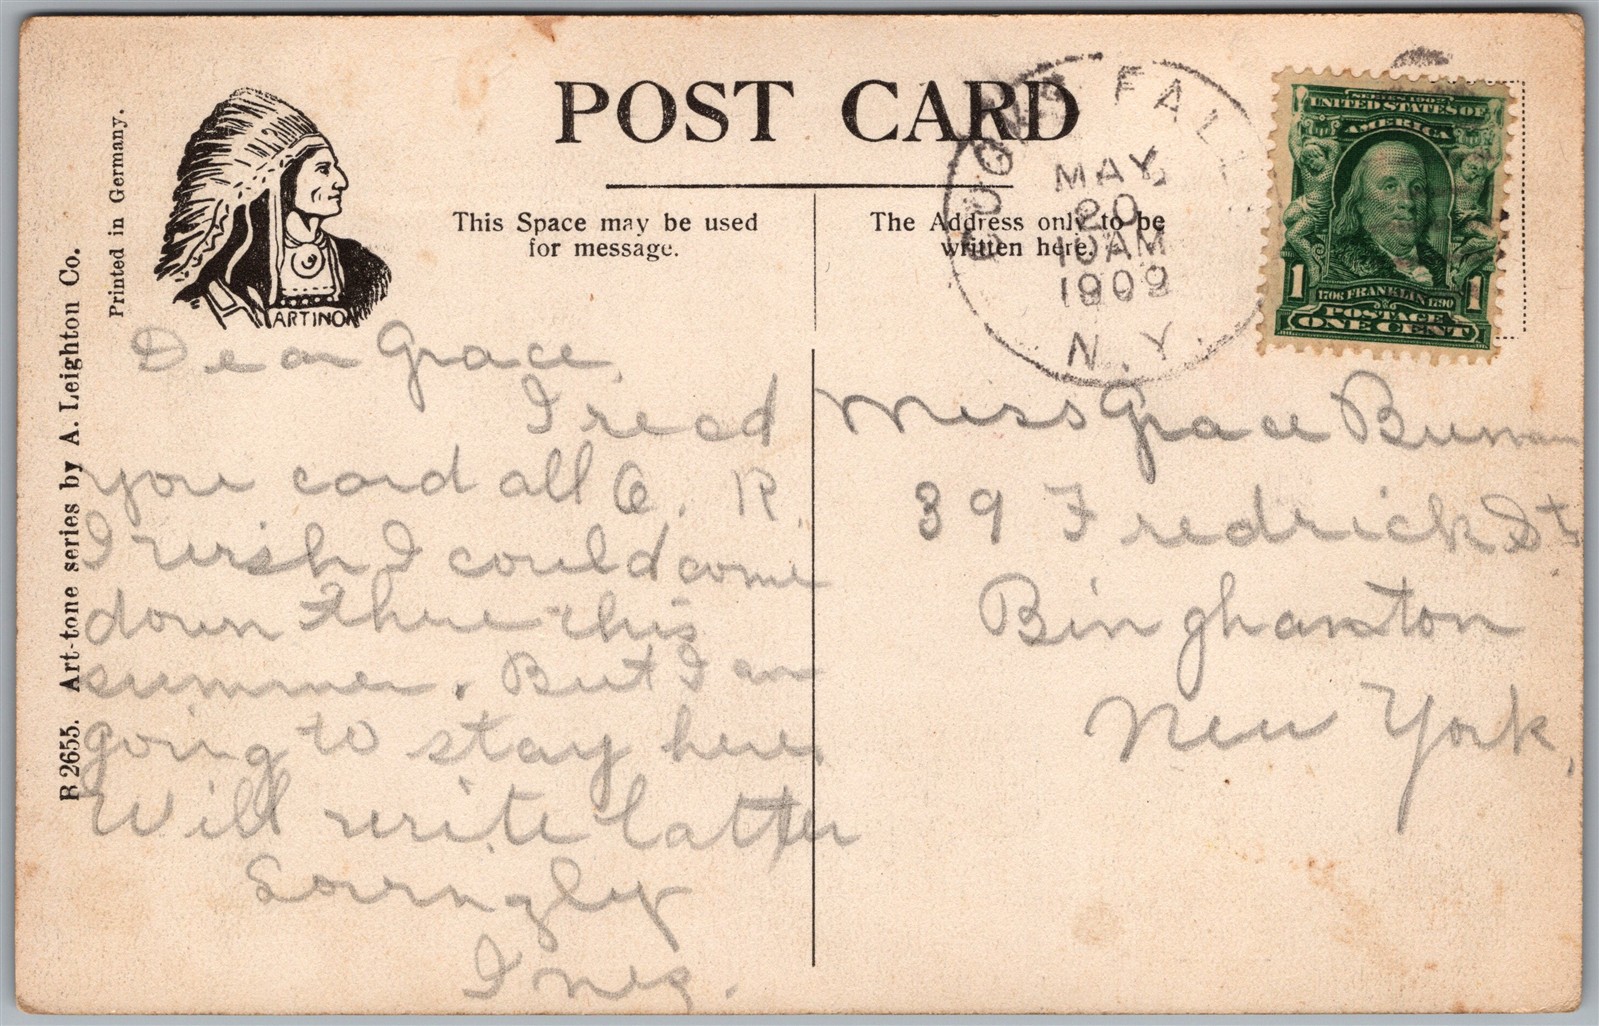 POST CARD
This Space may be used
for message.
The Address only to be
written here.
Printed in Germany.
B 2655. Art-tone series by A. Leighton Co.
ARTINO
MAY
20
10 AM
1909
N.Y.
SERIES 1902
UNITED STATES OF
AMERICA
1 1706 FRANKLIN 1790 1
POSTAGE
ONE CENT
Dear Grace,
I recd
your card all O. K.
I wish I could come
down there this
summer. But I am
going to stay here.
Will write latter
Lovingly
Inez.
Miss Grace
39 Fredrick St
Binghamton
New York,